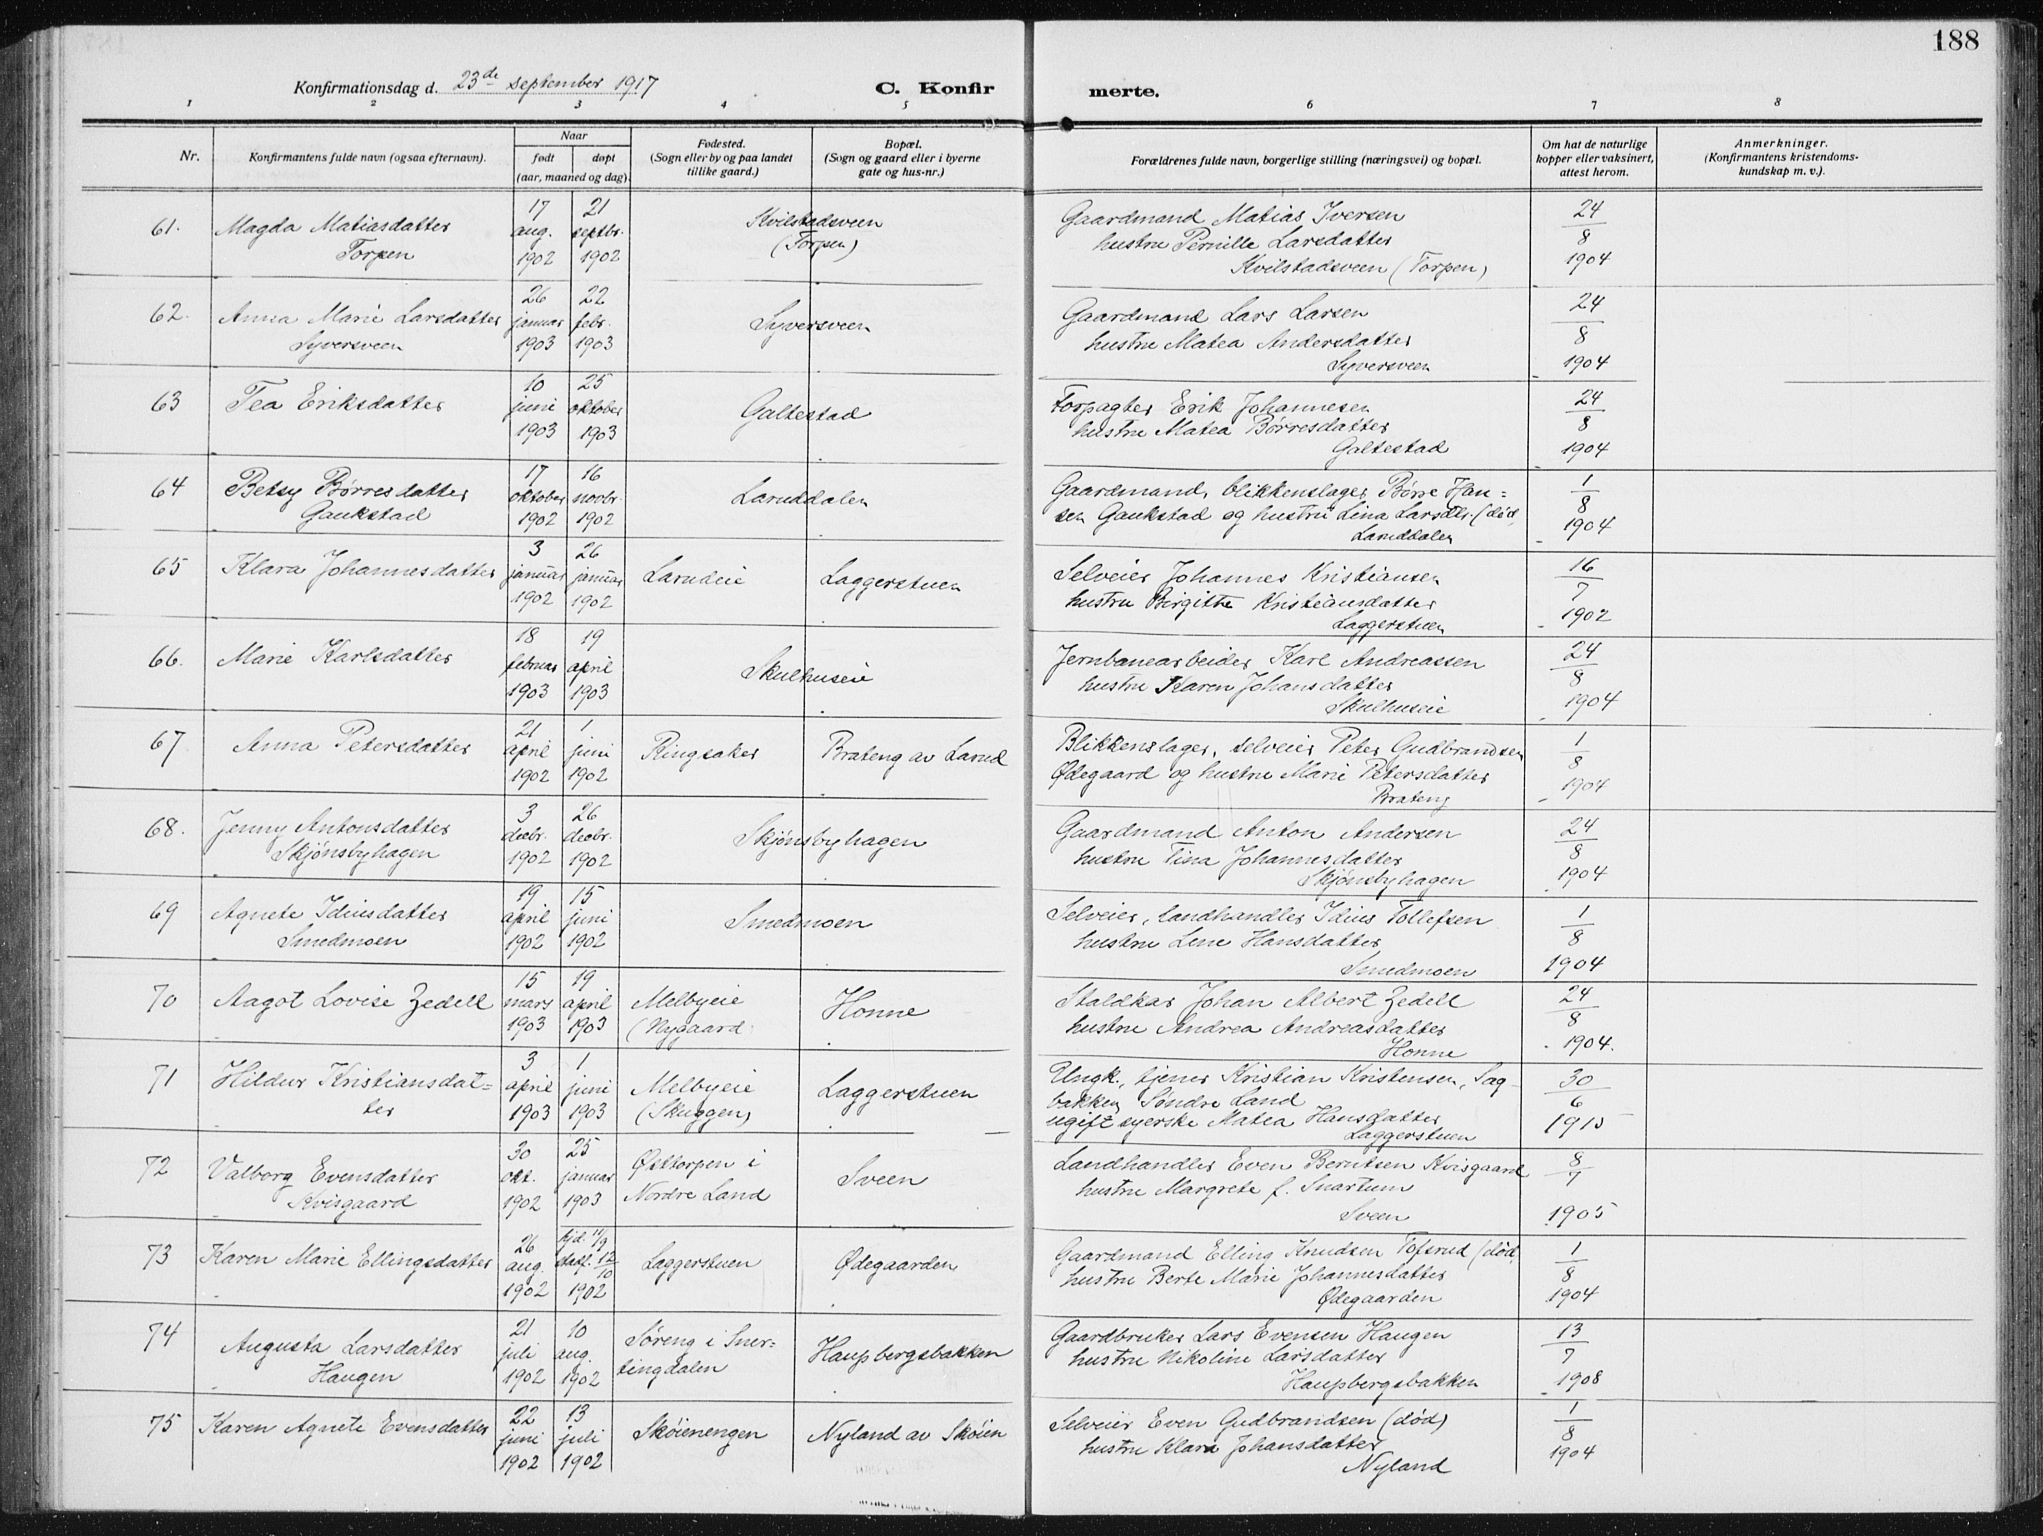 188
Konfirmationsdag d. 23de september 1917
C. Konfir
merte.
1 2 3 4 5 6 7 8
Nr.
Konfirmantens fulde navn (ogsaa efternavn).
Naar
født døpt
(aar, maaned og dag).
Fødested.
(Sogn eller by og paa landet
tillike gaard.)
Bopæl.
(Sogn og gaard eller i byerne
gate og hus-nr.)
Forældrenes fulde navn, borgerlige stilling (næringsvei) og bopæl.
Om hat de naturlige
kopper eller vaksinert,
attest herom.
Anmerkninger.
(Konfirmantens kristendoms-
kundskap m. v.).
61. Magda Matiasdatter
Torpen
17 aug. 1902
21 septbr. 1902
Kvilstadsveen
(Torpen)
Gaardmand Matias Iversen
hustru Pernille Larsdatter
Kvilstadsveen (Torpen)
24/8 1904
62. Anna Marie Larsdatter
Syversveen
26 januar 1903
22 febr. 1903
Syversveen
Gaardmand Lars Larsen
hustru Matea Andersdatter
Syversveen
24/8 1904
63 Tea Eriksdatter
10 juni 1903
25 oktober 1903
Galtestad
Forpagter Erik Johannesen
hustru Matea Børresdatter
Galtestad
24/8 1904
64 Betsy Børresdatter
Gaukstad
17 oktober 1902
16 novbr. 1902
Laruddalen
Gaardmand, blikkenslager Børre Han=
sen Gaukstad og hustru Lina Larsdtr. (død)
Laruddalen
1/8 1904
65 Klara Johannesdatter
3 januar 1902
26 januar 1902
Larudeie
Laggerstuen
Selveier Johannes Kristiansen
hustru Birgitte Kristiansdatter
Laggerstuen
16/7 1902
66. Marie Karlsdatter
18 februar 1903
19 april 1903
Skulhuseie
Jernbanearbeider Karl Andreassen
hustru Karen Johansdatter
Skulhuseie
24/8 1904
67 Anna Petersdatter
21 april 1902
1 juni 1902
Ringsaker
Brateng av Larud
Blikkenslager, selveier Peter Gudbrandsen
Ødegaard og hustru Marie Petersdatter
Brateng
1/8 1904
68. Jenny Antonsdatter
Skjønsbyhagen
3 decbr. 1902
26 decbr. 1902
Skjønsbyhagen
Gaardmand Anton Andersen
hustru Tina Johannesdatter
Skjønsbyhagen
24/8 1904
69 Agnete Idiusdatter
Smedmoen
19 april 1902
15 juni 1902
Smedmoen
Selveier, landhandler Idius Tollefsen
hustru Lene Hansdatter
Smedmoen
1/8 1904
70 Aagot Lovise Zedell
15 mars 1903
19 april 1903
Melbyeie
(Nygaard)
Honne
Staldkar Johan Albert Zedell
hustru Andrea Andreasdatter
Honne
24/8 1904.
71 Hildur Kristiansdat=
ter
3 april 1903
1 juni 1903
Melbyeie
(Skuggen)
Laggerstuen
Ungk., tjener Kristian Kristensen, Sag-
bakken Søndre Land
ugift syerske Matea Hansdatter
Laggerstuen
30/6 1915
72 Valborg Evensdatter
Kvisgaard
30 okt. 1902
25 januar 1903
Østtorpen i
Nordre Land
Sveen
Landhandler Even Berntsen Kvisgaard
hustru Margrete f. Snartum
Sveen
8/7 1905
73 Karen Marie Ellingsdatter
26 aug. 1902
hjd. 11/9
stadf. 12/10
1902
Laggerstuen
Ødegaarden
Gaardmand Elling Knudsen Tofsrud (død)
hustru Berte Marie Johannesdatter
Ødegaarden
1/8 1904
74 Augusta Larsdatter
Haugen
21 juli 1902
10 aug. 1902
Søreng i Sner-
tingdalen
Haupbergsbakken
Gaardbruker Lars Evensen Haugen
hustru Nikoline Larsdatter
Haupbergsbakken
13/7 1908
75 Karen Agnete Evensdatter
22 juni 1902
13 juli 1902
Skøienengen
Nyland av Skøien
Selveier Even Gudbrandsen (død)
hustru Klara Johansdatter
Nyland
1/8 1904